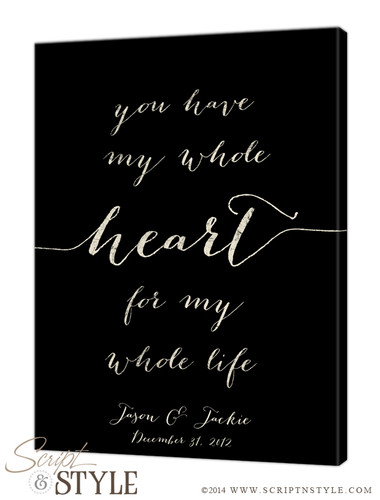 you have
my whole
heart
for my
whole life
Jason & Jackie
December 31, 2012
Script
& STYLE
©2014 WWW.SCRIPTNSTYLE.COM